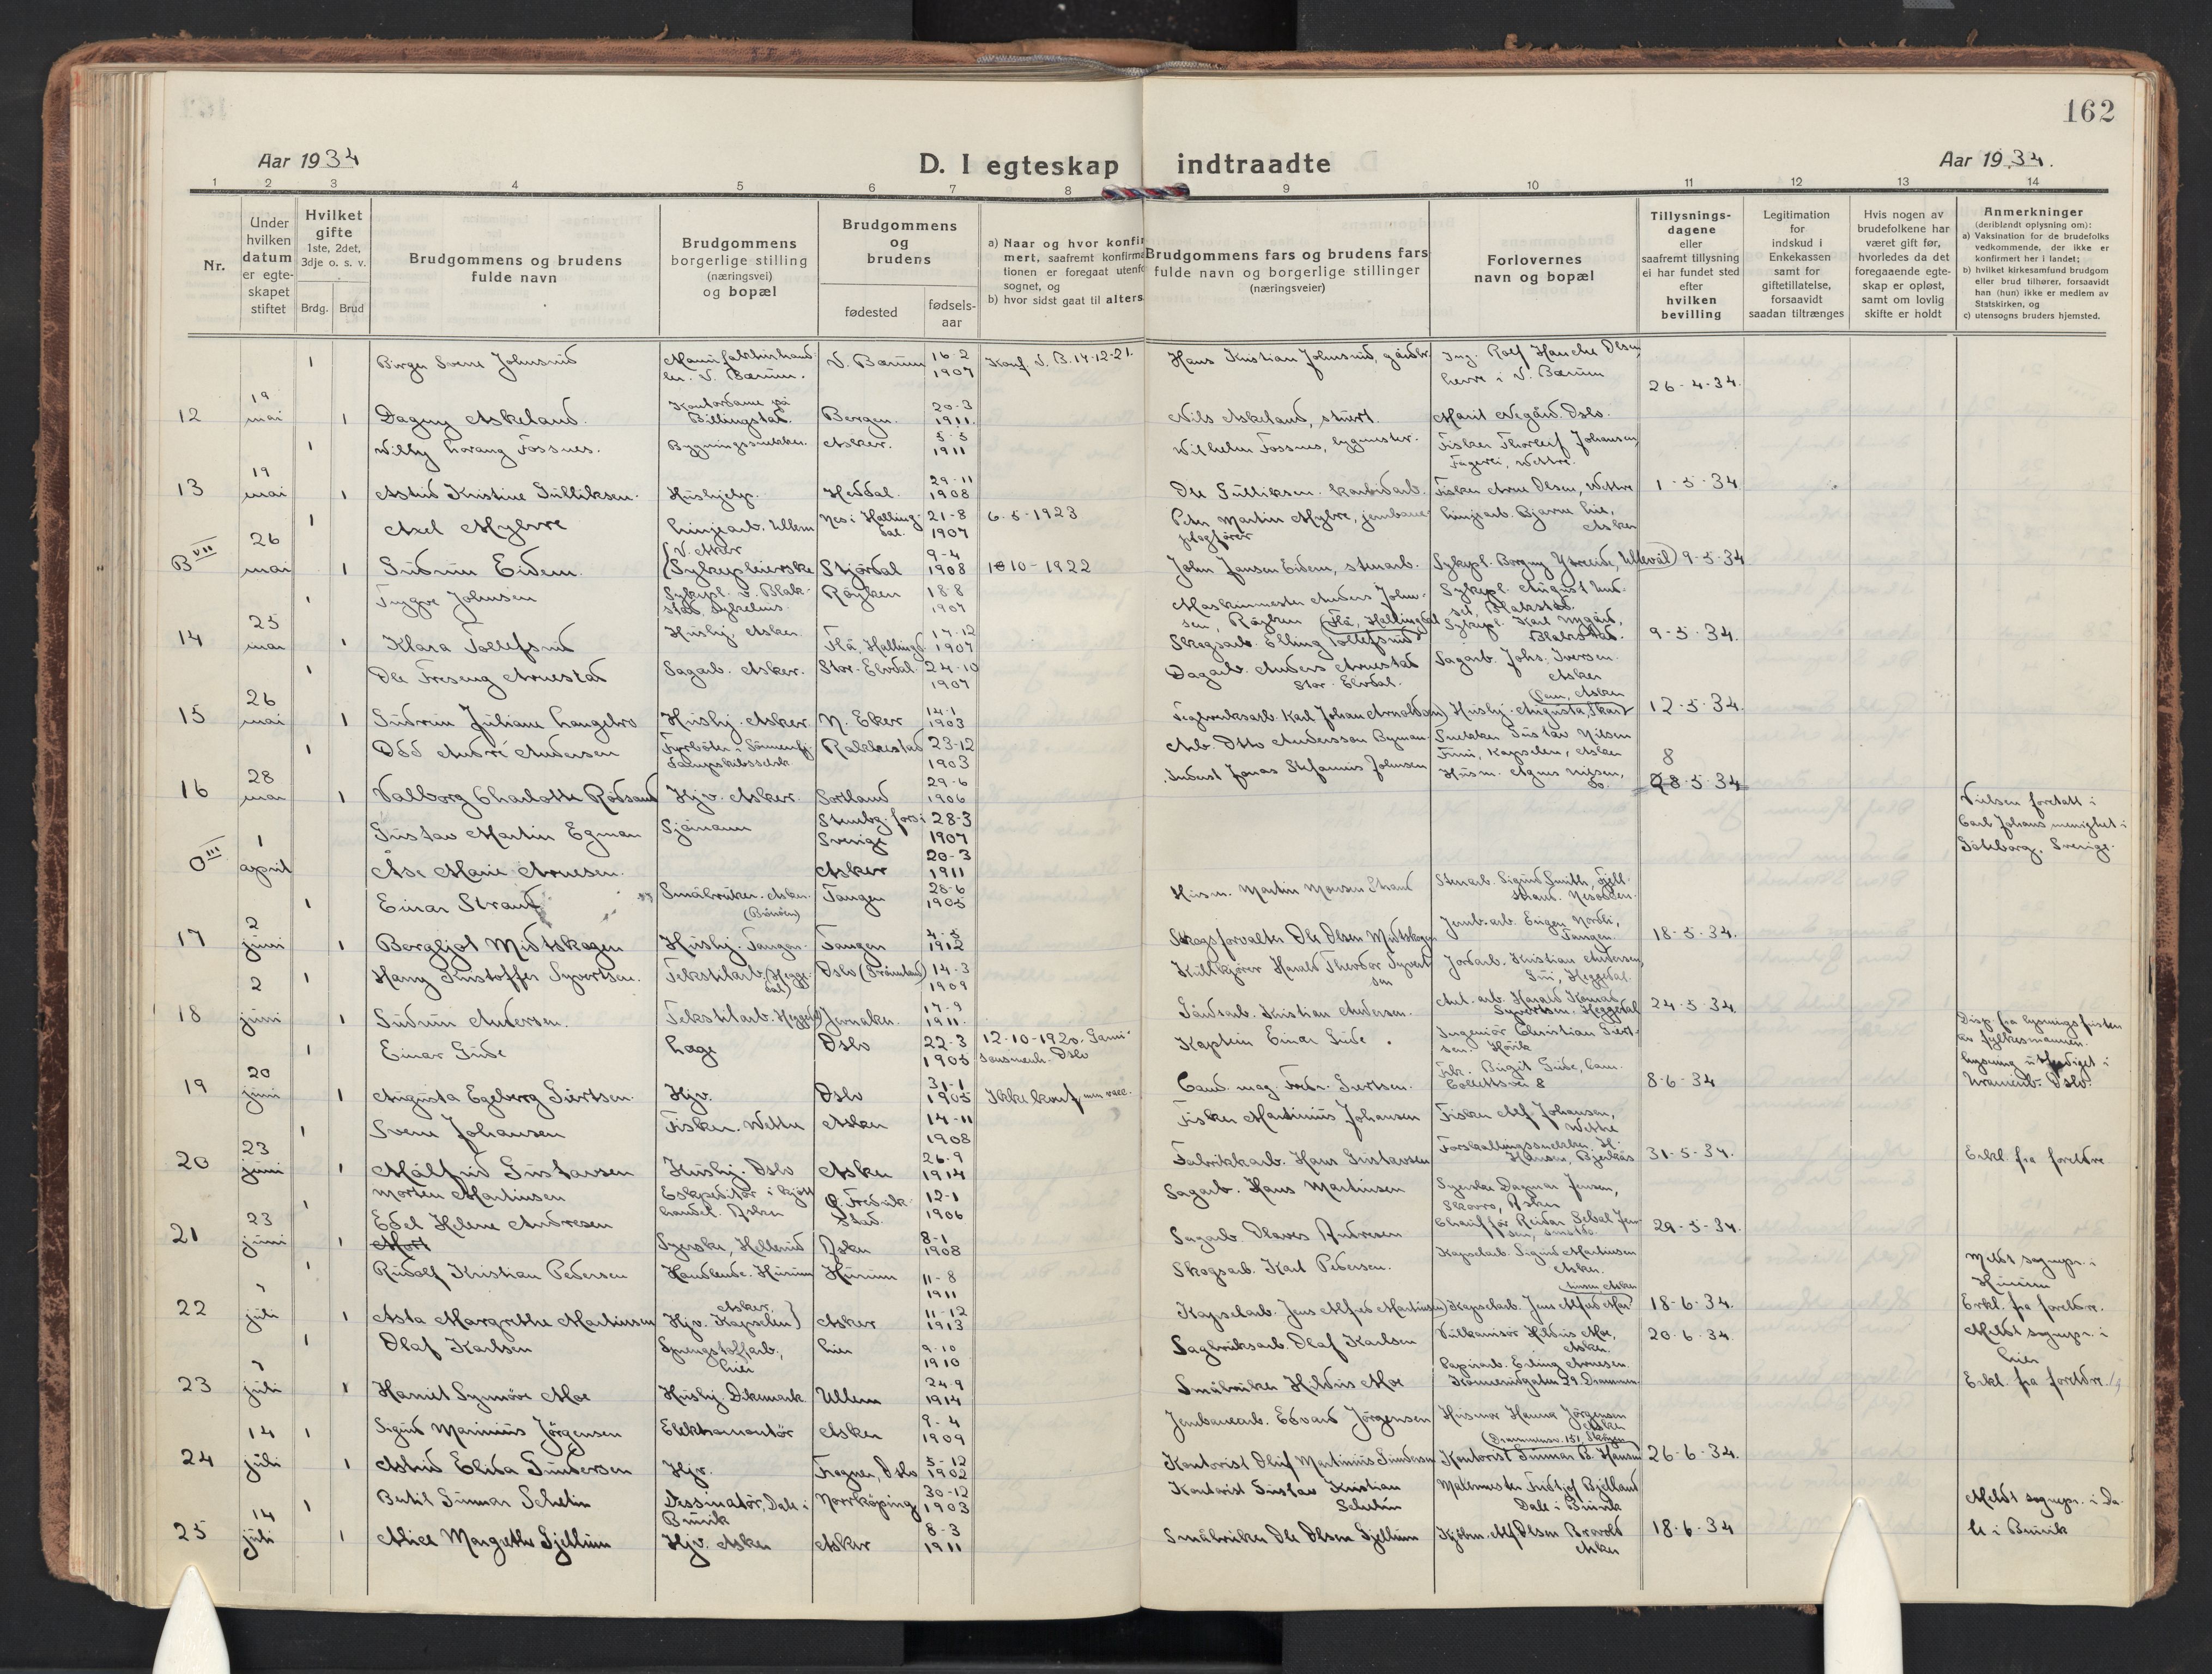 162
Aar 1934
D. I egteskap indtraadte
Aar 1934.
1 2 3 4 5 6 7 8 9 10 11 12 13 14
Nr.
Under hvilken datum er egteskapet stiftet
Hvilket gifte
1ste, 2det, 3dje o. s. v.
Brdg. Brud
Brudgommens og brudens fulde navn
Brudgommens borgerlige stilling (næringsvei) og bopæl
Brudgommens og brudens
fødested
fødsels-aar
a) Naar og hvor konfir
mert, saafremt konfirma
tionen er foregaat utenfo
sognet, og
b) hvor sidst gaat til alters
Brudgommens fars og brudens fars
fulde navn og borgerlige stillinger
(næringsveier)
Forlovernes
navn og bopæl
Tillysnings-
dagene
eller
saafremt tillysning
ei har fundet sted
efter
hvilken
bevilling
Legitimation
for
indskud i
Enkekassen
samt for
giftetillatelse,
forsaavidt
saadan tiltrænges
Hvis nogen av
brudefolkene har
været gift før,
hvorledes da det
foregaaende egte-
skap er opløst,
samt om lovlig
skifte er holdt
Anmerkninger
(deriblandt oplysning om):
a) Vaksination for de brudefolks
vedkommende, der ikke er
konfirmert her i landet;
b) hvilket kirkesamfund brudgom
eller brud tilhører, forsaavidt
han (hun) ikke er medlem av
Statskirken, og
c) utensogns bruders hjemsted.
1 Birger Sverre Johnsrud V. Bærum 16-2 1907 Konf. V. B. 14-12-21. Hans Kristian Johnsrud, gårdbr. Ing. Rolf Hanche Olsen
herre i V. Bærum
12 19 mai 1 Dagny Askeland. Kontordame på Billingstad. Bergen. 20-3 1911. Nils Askeland, stuert. Marit Øvegård. Oslo. 26-4-34.
1 Willy Lorang Fossnes. Bygningssnekker. Asker. 5-5 1911 Wilhelm Fossnes, byggmester. Fisker Thorleif Johansen,
13 19 mai 1 Astrid Kristine Gulliksen. Hushjelp. Heddal. 29-11 1908 Ole Gulliksen. karbidarb. Fisker Arne Olsen, Wettre 1-5-34
1 Axel Myhre Linjearb. Ullern V. Aker Nes i Hallingdal. 21-8 1907 6-5-1923 Peter Martin Myhre, jernbane- Linjearb. Bjarne Lie, Asker
B VII 26 mai 1 Gudrun Eidem. Sykepleierske Stjørdal 9-4 1908 10-1922 John Jansen Eidem, stuarb. Sykepl. Borgny Ystreide, Ullevål 9-5-34
1 Trygve Johnsen Sykepl. v. Blakstad Sykehus Røyken 18-8 1907 Maskinmester Anders Johnsen, Røyken Sykepl. August
14 25 mai 1 Klara Tollefsrud Hushj. Asker Flå, Hallingd. 17-12 1907 Skogsarb. Elling Tollefsrud Flå, Hallingdal Sykepl. Karl Nygård, Blakstad. 9-5-34.
1 Ole Treseng Arnestad Sagarb. Asker. Stor-Elvdal. 24-10 1907 Dagarb. Anders Arnestad Stor-Elvdal. Sagarb. Johs. Iversen. Asker
15 26 mai 1 Gudrun Juliane Langebro Hushj. Asker N. Eker 14-1 1903 Teglverksarb. Karl Johan Arnoldsen Hushj. Augusta Skar Asker 12-5-34.
1 Odd André Andersen Fyrbøter i Sønnenfj. Dampskibsselsk. Rakkestad 23-12 1903 Arb. Otto Andersson Byman Snekker Gustav Nilsen
16 28 mai 1 Valborg Charlotte Rødsand Hjv. Asker. Sortland 29-6 1906 Jonas Stefanus Johnsen Husm. Agnes Nilsen, do. 8 28-5-34
1 Gustav Martin Egman Sjømann Sverige 28-3 1907
O III april Åse Marie Arnesen. Asker 20-3 1911
Vielsen foretatt i
Carl Johans menighet i
Göteborg. Sverige.
1 Einar Strand Småbruker. Asker. (Brønøen) Tangen 28-6 1905 Husm. Martin Monsen Strand Stuarb. Sigurd Smith, Fjellstrand. Nesodden
17 2 juni 1 Bergljot Midtskogen Hushj. Tangen. Tangen 4-5 1912 Skogsforvalter Ole Olsen Midtskogen Jernb.arb. Eugen Nordli, Tangen. 18-5-34.
1 Harry Kristoffer Syvertsen. Tekstilarb. (Heggedal) Oslo 14-3 1909 Kullkjører Harald Theodor Syvertsen Jordarb. Kristian Andersen, Heggedal
18 2 juni 1 Gudrun Andersen. Tekstilarb. Heggedal Jevnaker. 17-9 1911 Gårdsarb. Kristian Andersen. Harald Konrad Syvertsen. Heggedal 24-5-34
1 Einar Gude Læge Oslo 22-3 1905 12-10-1920. Garnisonsmenh. Oslo Kaptein Einar Gude. Ingeniør Christian Siertsen. Høvik
Disp. fra lysningsfristen
av fylkesmannen.
19 20 juni 1 Augusta Egeberg Siertsen. Hjv. Oslo 31-1 1905 Ikke konf. men vacc. Cand. mag. Fredr. Siertsen. Frk. Birgit Gude, Cam. Colletts vei 8 8-6-34
Lysning utferdiget i
Uranienb. Oslo.
1 Sverre Johansen Fisker. Wettre Asker 14-11 1908 Fisker Martinius Johansen Fisker Alf Johansen, Wettre
20 23 juni 1 Målfrid Gustavsen Hushj. Oslo Asker 26-9 1914 Fabrikkarb. Hans Gustavsen Forskallingssnekker H. Hansen, Bjerkås 31-5-34. Erkl. fra foreldre
1 Morten Martinsen Ekspeditør i kjøtthandel. Asker Fredrikstad. 12-1 1906 Sagarb. Hans Martinsen Syerske Dagmar Jensen, Asker
21 23 juni 1 Edel Helene Andresen Syerske, Hallenrud Asker 8-1 1908 Sagarb. Olaves Andresen Chauffør Reidar 29-5-34.
1 Rudolf Kristian Pedersen Handlende. Hurum Hurum 11-8 1911 Skogsarb. Karl Pedersen. Kapselarb. Sigurd Martinsen Asker. Meldt sognepr. i Hurum
22 7 juli 1 Asta Margrethe Martinsen Hjv. Kapselen Asker. Asker 11-12 1913 Kapselarb. Jens Alfred Martinsen Kapselarb. Jens Alfred Martinsen, Asker 18-6-34. Erkl. fra foreldr.
1 Olaf Karlsen Sprengstoffarb., Lier Lier 9-10 1910 Sagbruksarb. Olaf Karlsen Vulkanisør Hildus Moe, Asker. 20-6-34. Meldt sognepr. i Lier
23 7 juli 1 Harriet Synnøve Moe Hushj. Dikemark Ullern 24-9 1914 Småbruker Hildus Moe Papirarb. Erling Arnesen. 29. Drammen Erkl. fra foreldre.
1 Sigurd Marinius Jørgensen Elektromontør Asker 9-4 1909 Jernbanearb. Edvard Jørgensen Husmor Hanna Jørgensen Asker
24 14 juli 1 Astrid Elida Gundersen Hjv. Frogner, Oslo 5-12 1902 Kontorist Oluf Martinius Gundersen Kontorist Gunnar B. Hansen Drammensv. 151, Skøyen 26-6-34.
1 Bertil Gunnar Schelin Dessinatør, Dale i Bruvik Norrköping 30-12 1903 Kontorist Gustav Kristian Schelin Malermester Fridtjof Bjelland Dale i Bruvik
25 14 juli 1 Alice Margrethe Gjellum Hjv. Asker Asker 8-3 1911 Småbruker Ole Olsen Gjellum Kjøbm. Alf Olsen Bravold Asker 18-6-34
Meldt sognepr. i Da-
le i Bruvik